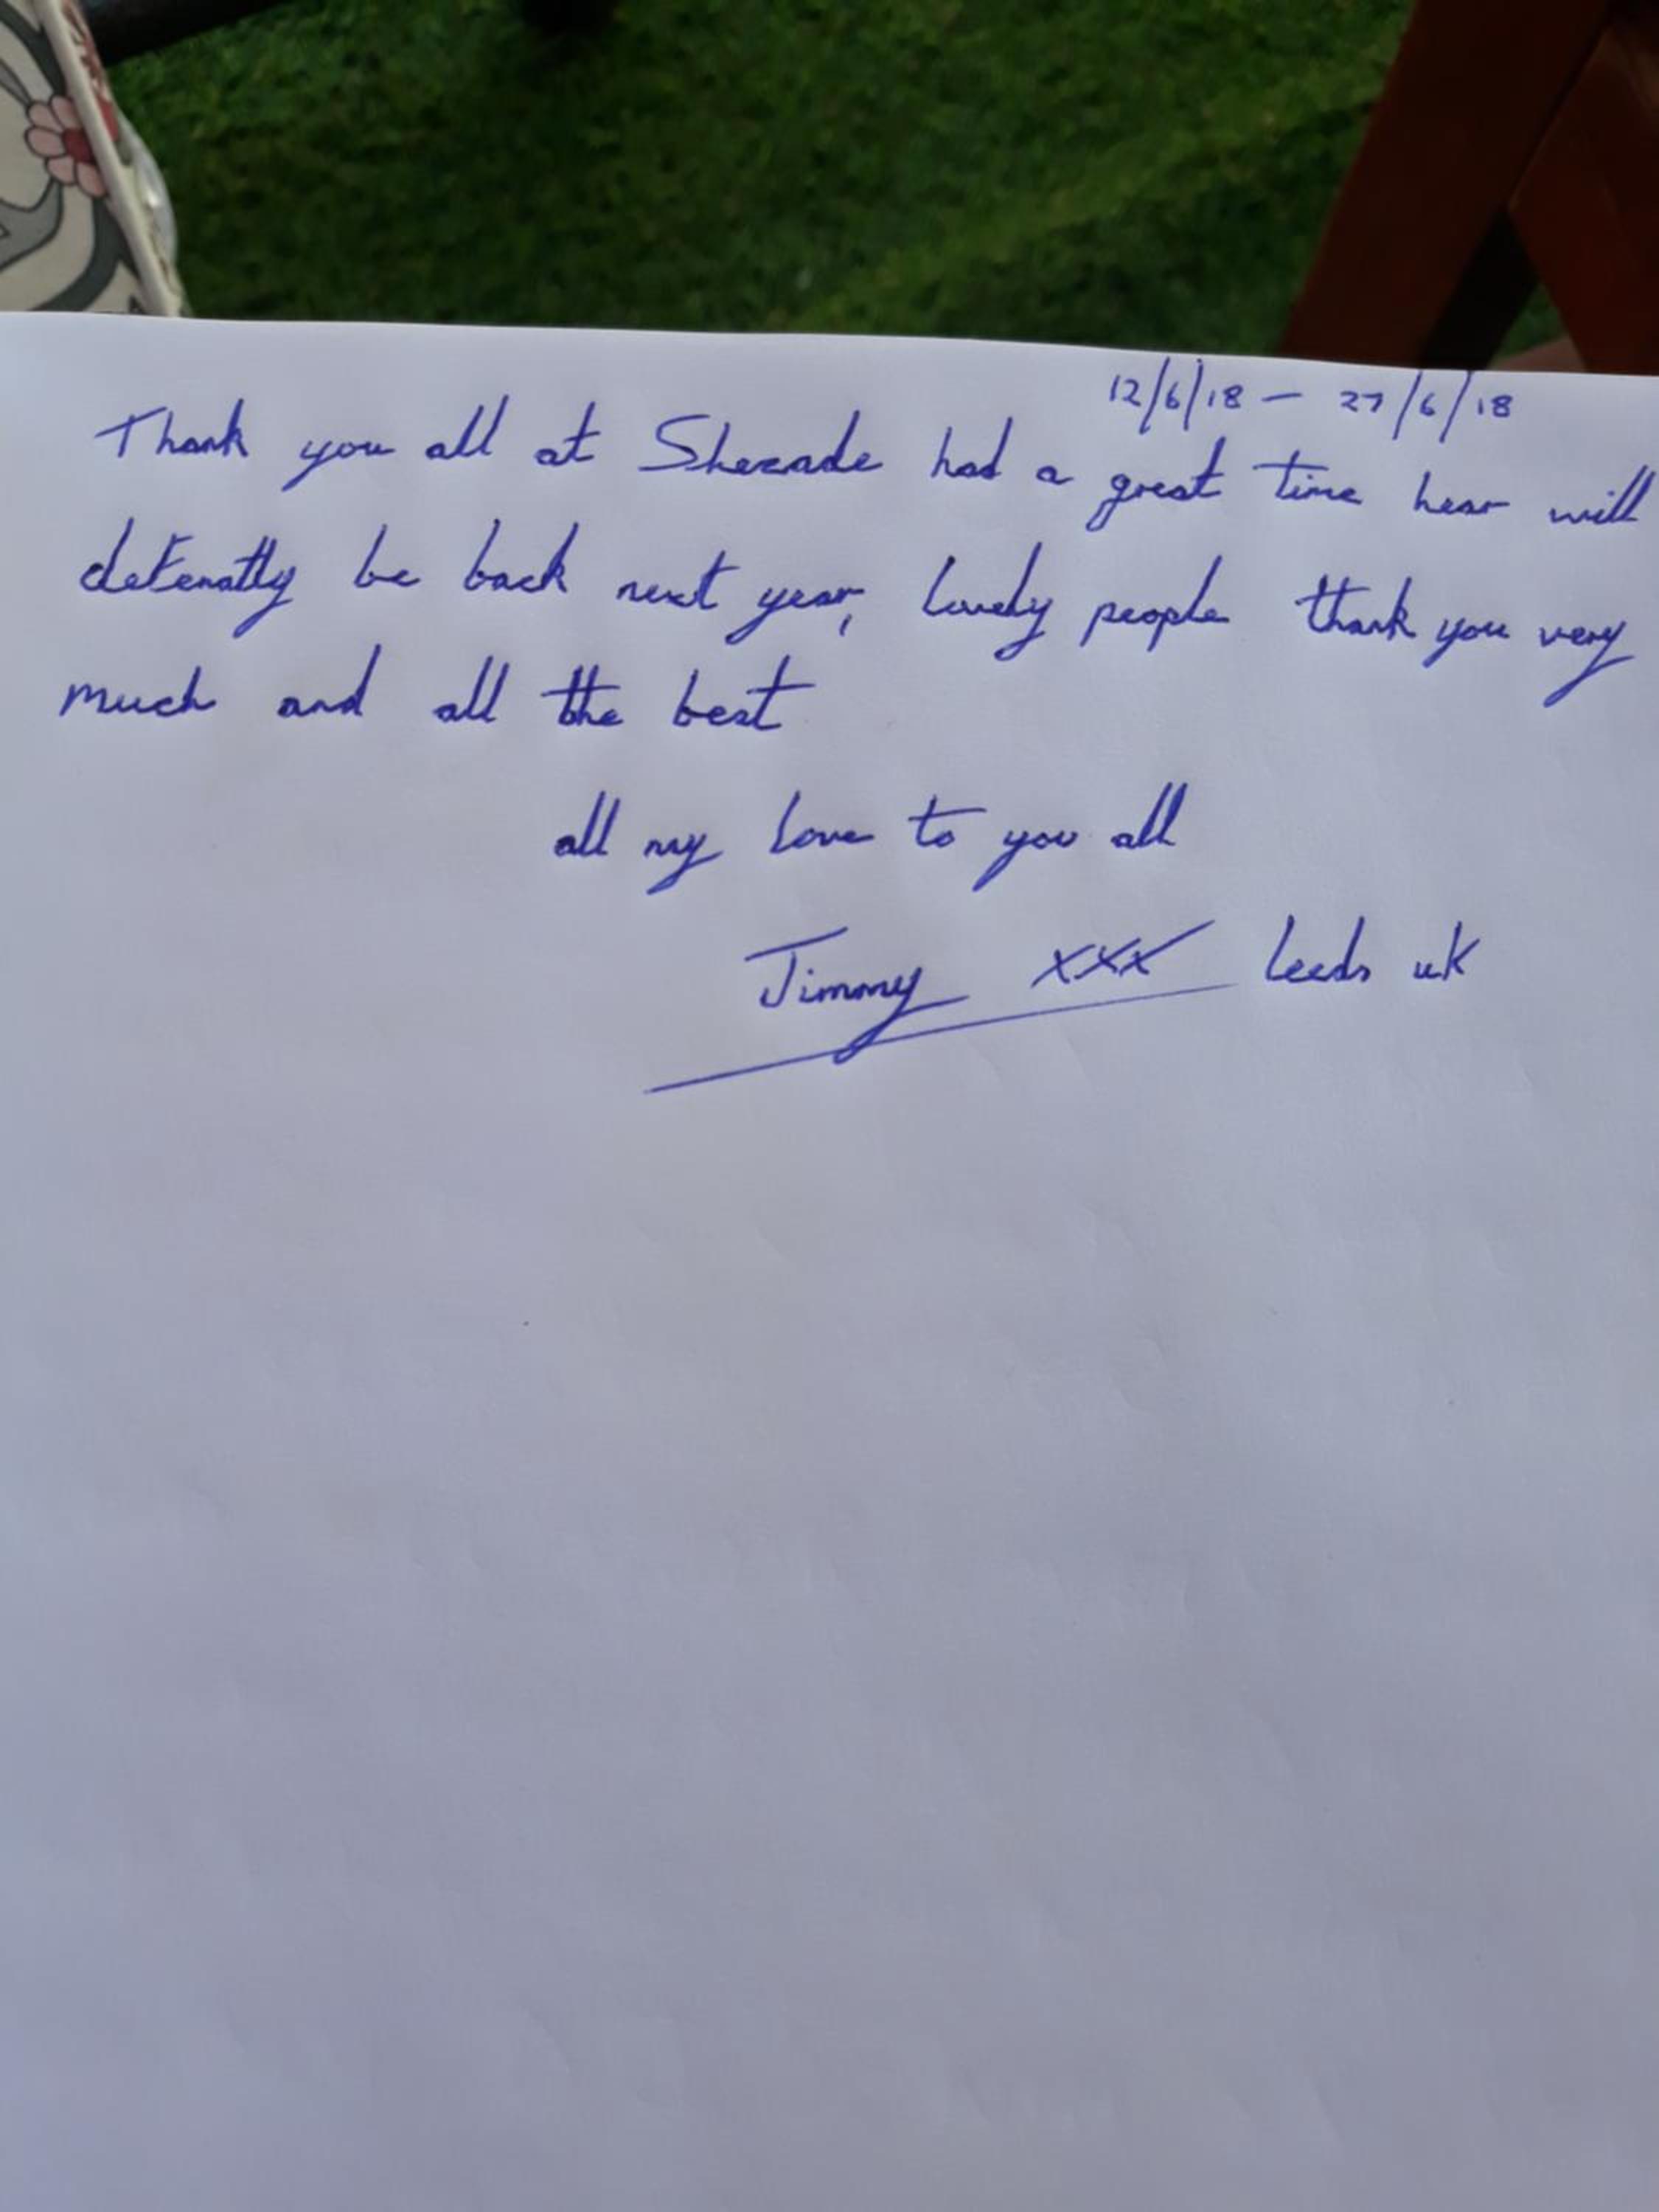 12/6/18 - 27/6/18
Thank you all at Shezade had a great time hear will
defenatly be back next year, lovely people thank you very
much and all the best
all my love to you all
Jimmy xxx Leeds uk